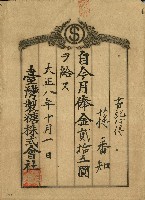 蔡番知
自今月俸金貳拾五圓
ヲ給ス
大正八年十月一日
臺灣製糖株式會社